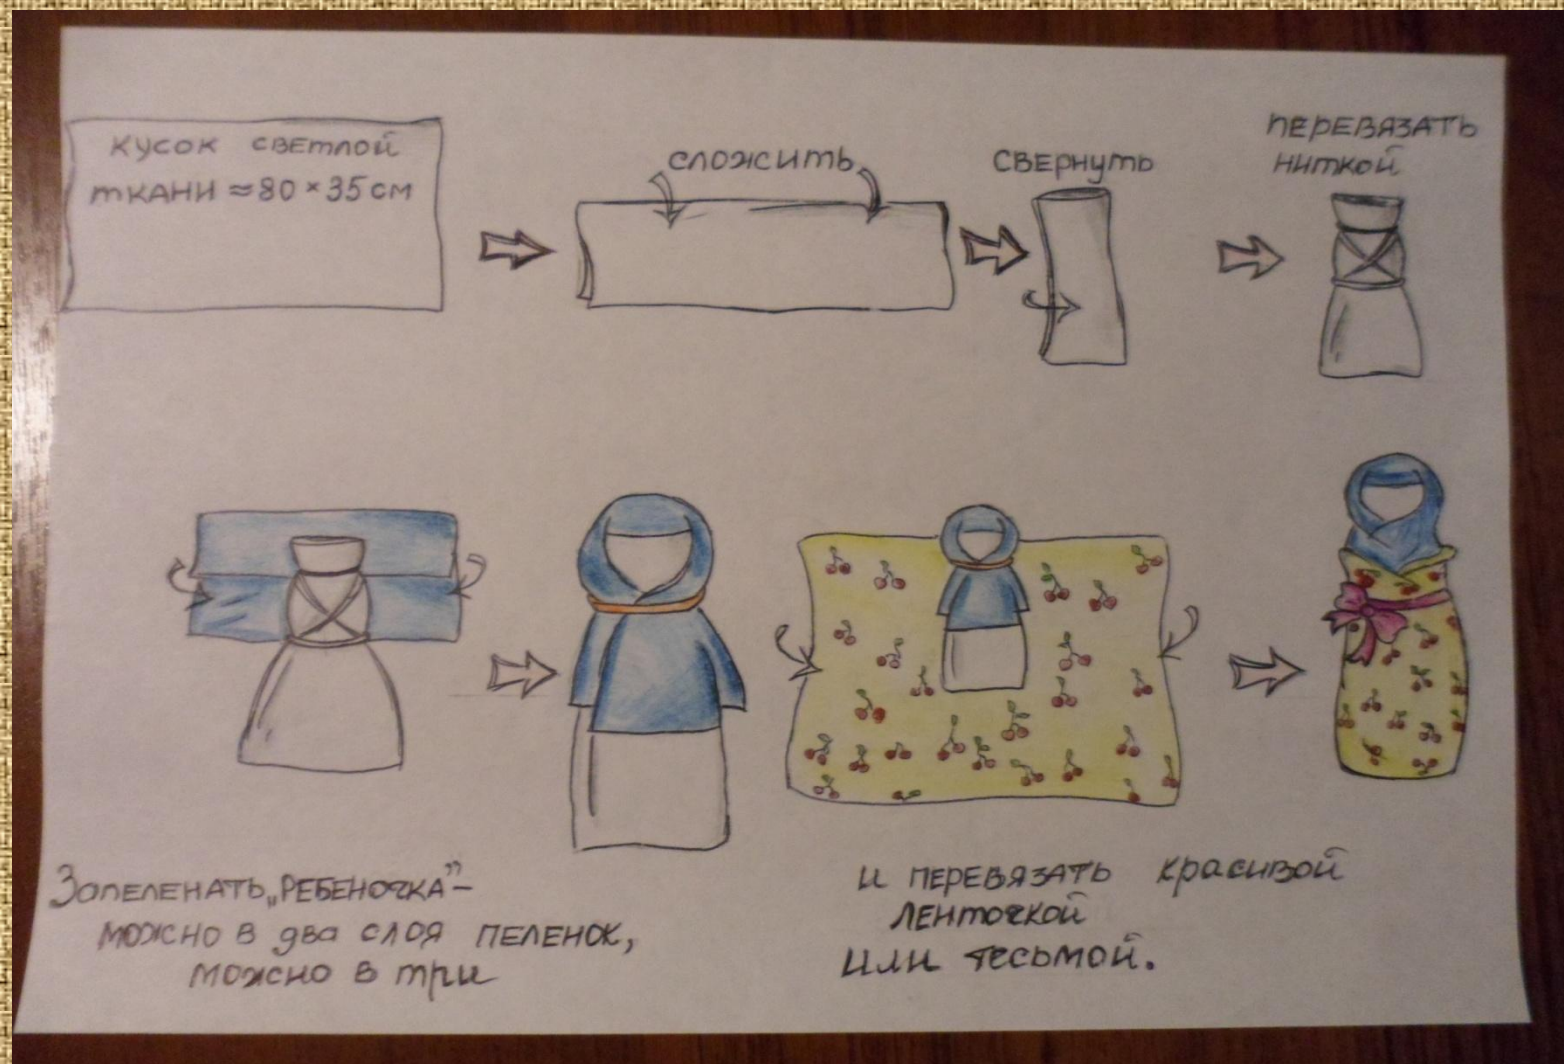 кусок светлой
ткани ≈ 80 × 35 см
сложить
свернуть
перевязать
ниткой
Запеленать „ребеночка” –
можно в два слоя пеленок,
можно в три
и перевязать красивой
ленточкой
или тесьмой.